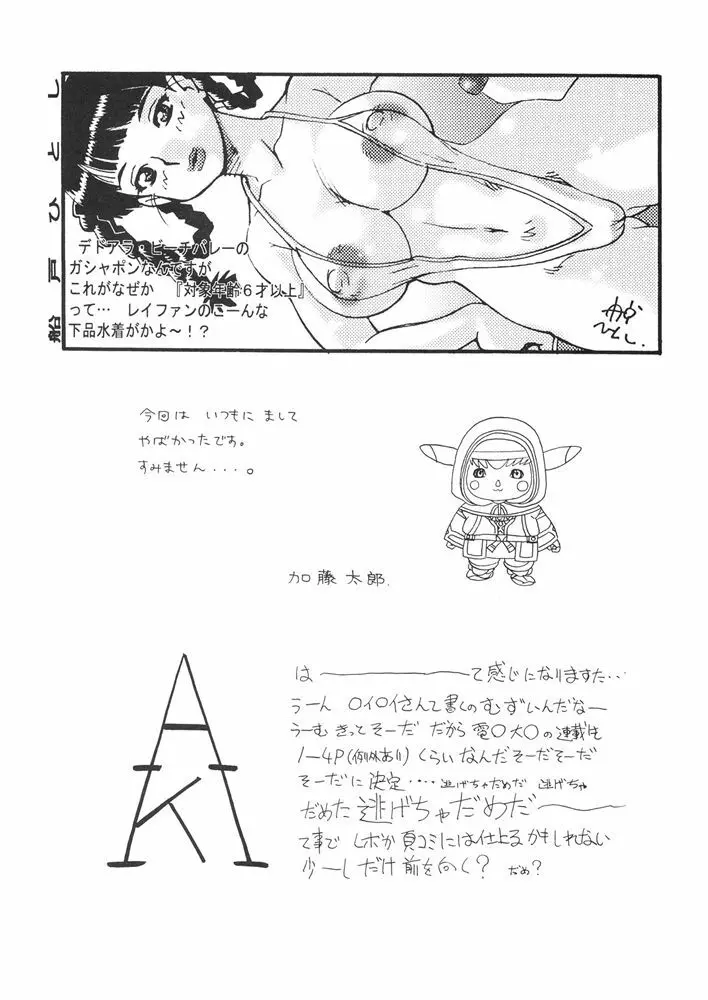 船戸ひとし
デドアラ・ビーチバレーの
ガシャポンなんですが
これがなぜか 『対象年齢6才以上』
って… レイファンのこーんな
下品水着がかよ～！？
ひとし.
今回は いつもに まして
やばかったです。
すみません・・・。
加藤 太郎.
AK
は―――て感じになりますた・・
うーん 〇イ〇イさんて書くのむずいんだなー
うーむ きってそーだ だから 電〇大〇の連載も
1―4P(例外あり) くらい なんだ そーだそーだ
そーだに 決定・・・・ 逃げちゃだめだ 逃げちゃ
だめだ 逃げちゃだめだ―――
て事で レボか 夏コミには仕上るかもしれない
少ーしだけ 前を向く? だめ?